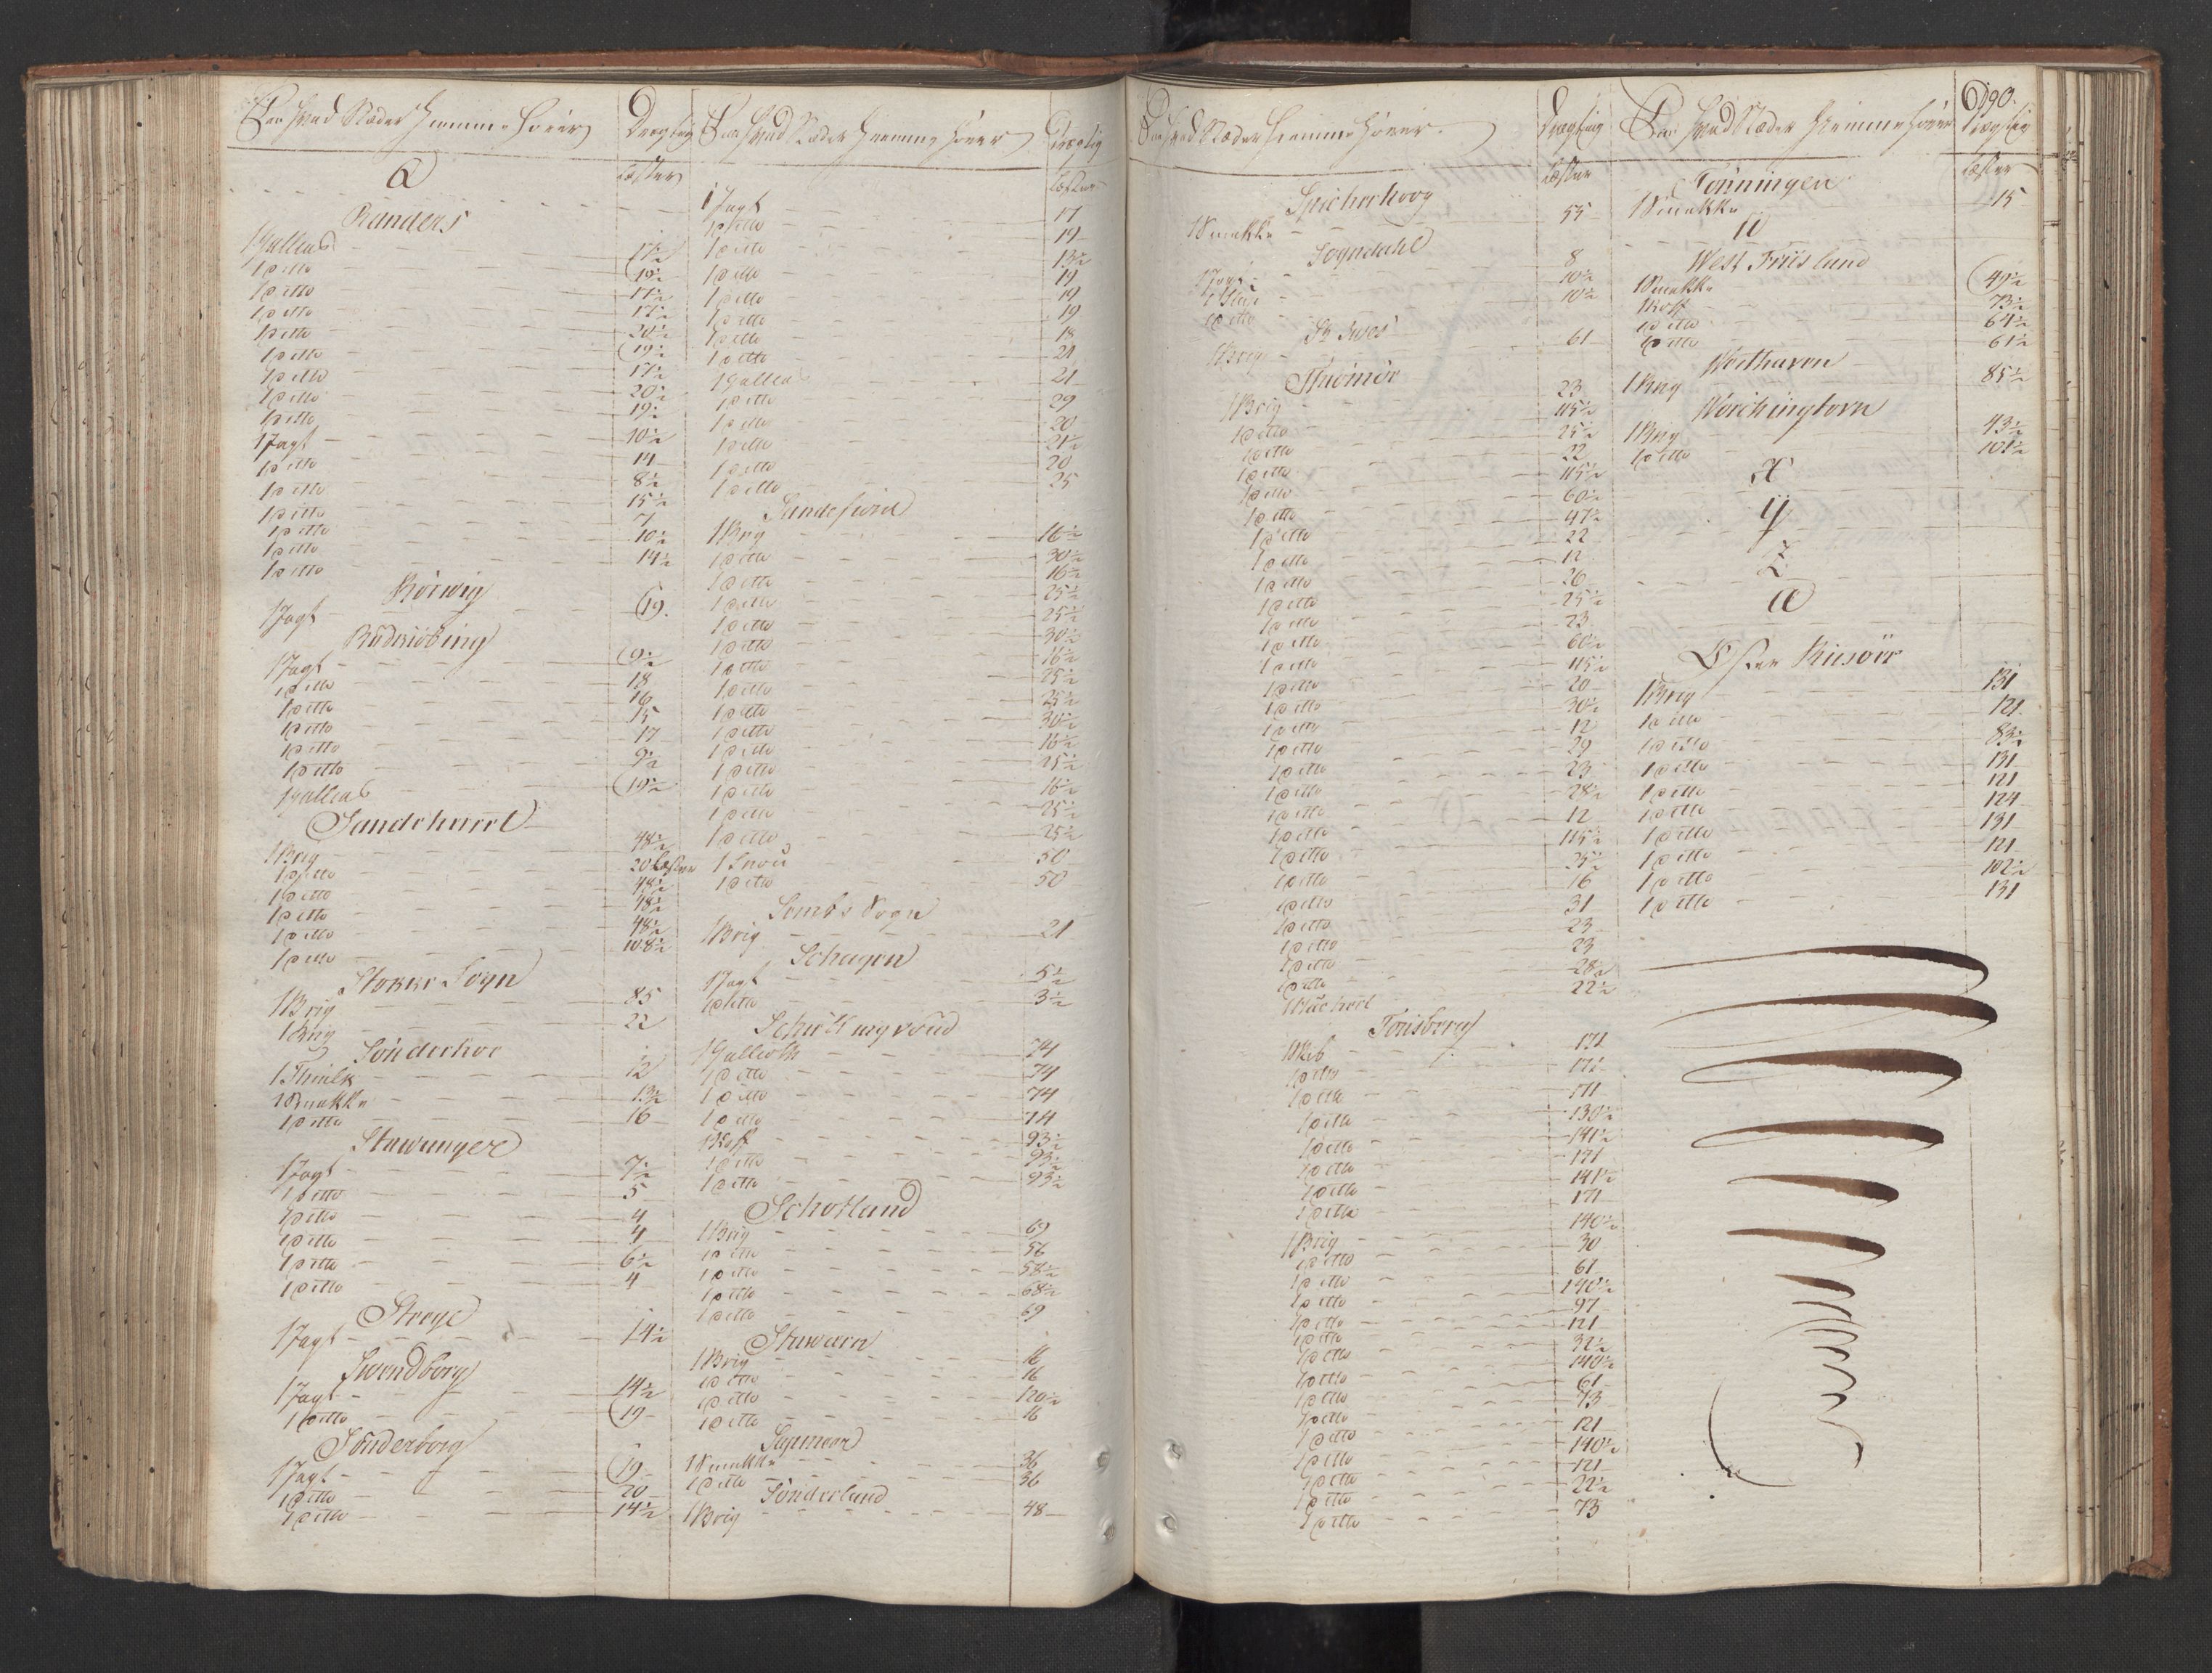 Fra hvad Stæder hiemme hörer
Drægtig
Læster
Q
Randers
1 Galleas 17½
1 Ditto 19½
1 Ditto 17½
1 Ditto 17½
1 Ditto 20½
1 Ditto 19½
1 Ditto 17½
1 Ditto 20½
1 Ditto 19½
1 Jagt 10½
1 Ditto 14
1 Ditto 8½
1 Ditto 15½
1 Ditto 7
1 Ditto 10½
1 Ditto 14½
Rörwig
1 Jagt 19
Rudkiöbing
1 Jagt 9½
1 Ditto 18
1 Ditto 16
1 Ditto 15
1 Ditto 17
1 Ditto 9½
1 Galleas 19½
Sandehurel
1 Brig 48½
1 Ditto 20 Læster
1 Ditto 48½
1 Ditto 48½
1 Ditto 48½
1 Ditto 108½
Stokke Sogn
1 Brig 85
1 Brig 22
Sönderhoe
1 12
1 Smakke 13½
1 Ditto 16
Stawanger
1 Jagt 7½
1 Ditto 5
1 Ditto 4
1 Ditto 4
1 Ditto 6½
1 Ditto 4
Strege
1 Jagt 14½
Swendborg
1 Jagt 14½
1 Ditto 19
Sönderborg
1 Jagt 19
1 Ditto 20
1 Ditto 14½
Fra hvad Stæder hiemme hörer
Drægtig
Læster
1 Jagt 17
1 Ditto 19
1 Ditto 13½
1 Ditto 19
1 Ditto 19
1 Ditto 19
1 Ditto 18
1 Ditto 21
1 Galleas 21
1 Ditto 29
1 Ditto 20
1 Ditto 21½
1 Ditto 20
1 Ditto 25
Sandefiord
1 Brig 16½
1 Ditto 30½
1 Ditto 16½
1 Ditto 25½
1 Ditto 25½
1 Ditto 30½
1 Ditto 16½
1 Ditto 25½
1 Ditto 25½
1 Ditto 30½
1 Ditto 16½
1 Ditto 25½
1 Ditto 16½
1 Ditto 25½
1 Ditto 25½
1 Snou 50
1 Ditto 50
Sembs Sogn
1 Brig 21
Schagen
1 Jagt 5½
1 Ditto 3½
1 Gallioth 74
1 Ditto 74
1 Ditto 74
1 Ditto 74
1 Koff 93½
1 Ditto 93½
1 Ditto 93½
Schotland
1 Brig 69
1 Ditto 56
1 Ditto 58½
1 Ditto 68½
1 Ditto 69
Stawern
1 Brig 16
1 Ditto 16
1 Ditto 120½
1 Ditto 16
Sapmeer
1 Smakke 36
1 Ditto 36
Sönderland
1 Brig 48
Fra hvad Stæder hiemme hörer
Drægtig
Læster
Spicherhoog
1 Smakke 55
Sogndahl
1 Jagt 8
1 10½
1 Ditto 10½
1 Brig 61
Thromöe
1 Brig 23
1 Ditto 115½
1 Ditto 25½
1 Ditto 22
1 Ditto 115½
1 Ditto 60½
1 Ditto 47½
1 Ditto 22
1 Ditto 12
1 Ditto 26
1 Ditto 25½
1 Ditto 23
1 Ditto 60½
1 Ditto 115½
1 Ditto 20
1 Ditto 30½
1 Ditto 12
1 Ditto 29
1 Ditto 23
1 Ditto 28½
1 Ditto 12
1 Ditto 115½
1 Ditto 25½
1 Ditto 16
1 Ditto 31
1 Ditto 23
1 Ditto 23
1 Ditto 28½
1 Huchert 22½
Tonsberg
1 Skib 171
1 Ditto 171
1 Ditto 171
1 Ditto 130½
1 Ditto 141½
1 Ditto 171
1 Ditto 141½
1 Ditto 171
1 Brig 140½
1 Ditto 30
1 Ditto 61
1 Ditto 140½
1 Ditto 97
1 Ditto 121
1 Ditto 32½
1 Ditto 140½
1 Ditto 61
1 Ditto 73
1 Ditto 121
1 Ditto 140½
1 Ditto 121
1 Ditto 22½
1 Ditto 73
690.
Fra hvad Stæder hiemme hörer
Drægtig
Læster
Tönningen
1 Smakke 15
W
West Friisland
1 Smakke 49½
1 Koff 73½
1 Ditto 64½
1 Ditto 61½
Worthaven
1 Brig 85½
Worchingtown
1 Brig 43½
1 Ditto 101½
X
Y
Z
Æ
Öster Riisöer
1 Brig 131
1 Ditto 121
1 Ditto 83½
1 Ditto 131
1 Ditto 121
1 Ditto 124
1 Ditto 131
1 Ditto 121
1 Ditto 102½
1 Ditto 131